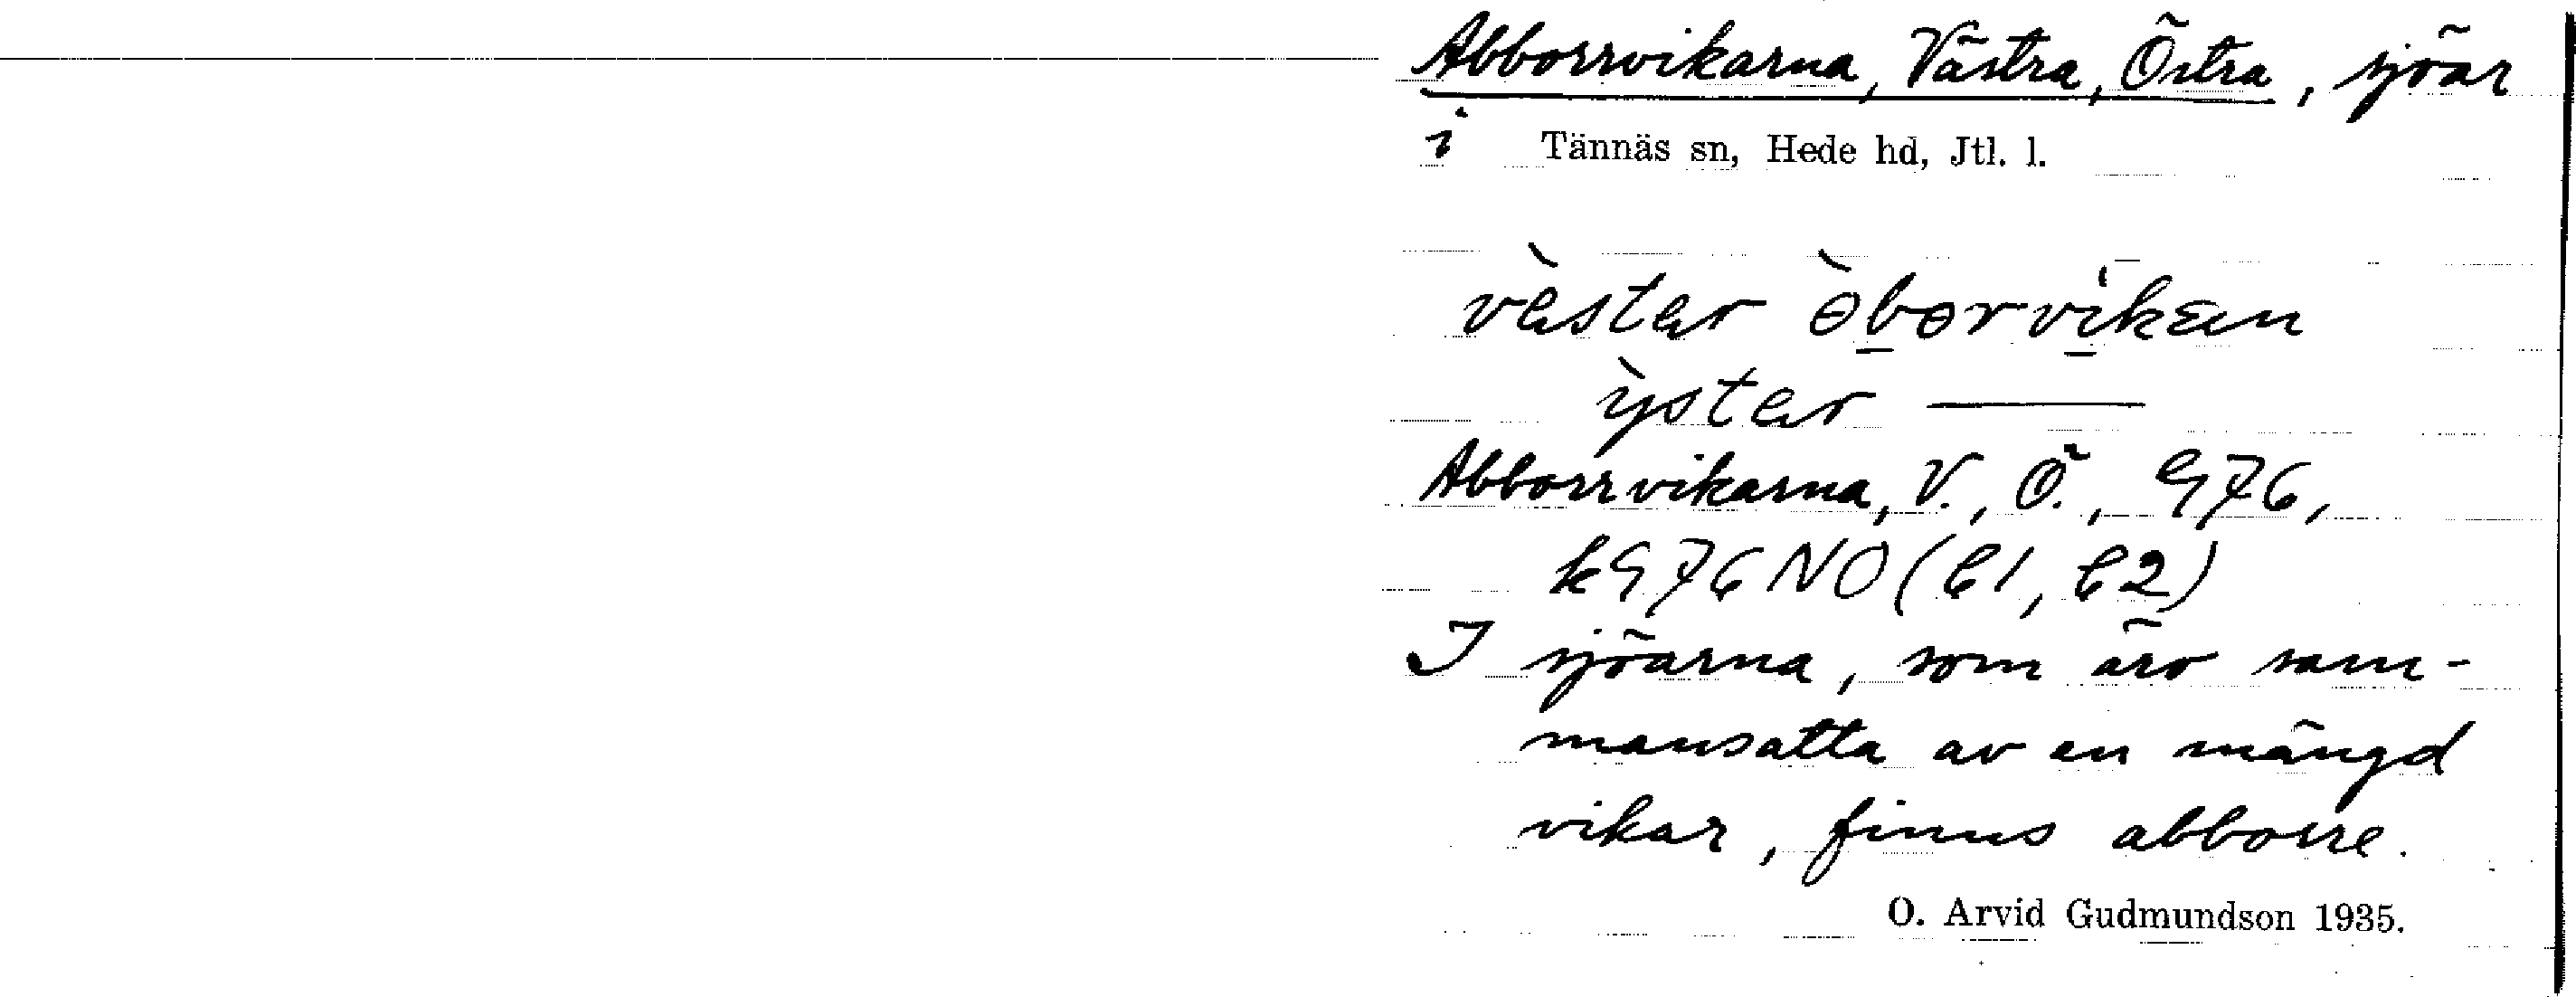 Abborrvikarna, Västra, Östra, sjöar
i Tännäs sn, Hede hd, Jtl. l.
vèster òborvíkæn
ỳster ———
Abborrvikarna, V., Ö., G76,
kG76NO (b1, b2)
I sjöarna, som äro sam-
mansatta av en mängd
vikar, finns abborre.
O. Arvid Gudmundson 1935.